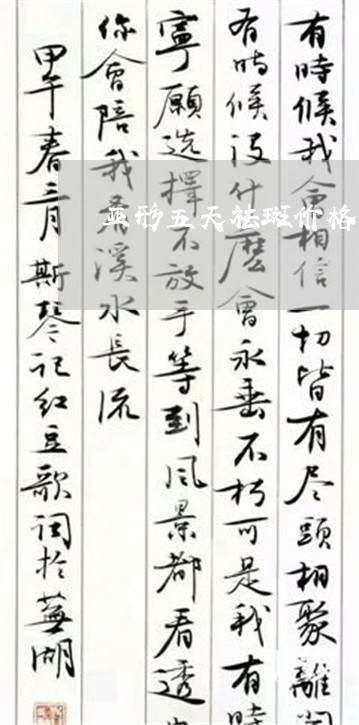 有時候我會相信一切皆有尽頭相聚離
有時候没什麽會永垂不朽可是我有時
寧願选擇不放手等到风景都看透
你會陪我看溪水長流
甲午春三月斯琴记红豆歌词於蕪湖
亚形五天祛斑价格